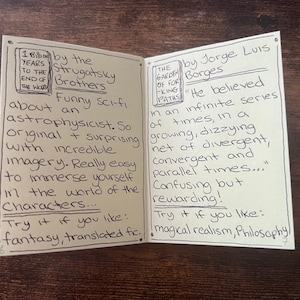 1 Billion
YEARS
TO THE
END OF
THE WORLD
by the
Strugatsky
Brothers
Funny sci-fi
about an
astrophysicist. So
original + surprising
with incredible
imagery. Really easy
to immerse yourself
in the world of the
characters...
Try it if you like:
fantasy, translated fic.
THE
GARDEN
OF FOR
-KING
PATHS
by Jorge Luis
Borges
"He believed
in an infinite series
of times, in a
growing, dizzying
net of divergent,
convergent and
parallel times..."
Confusing but
rewarding!
Try it if you like:
magical realism, Philosophy